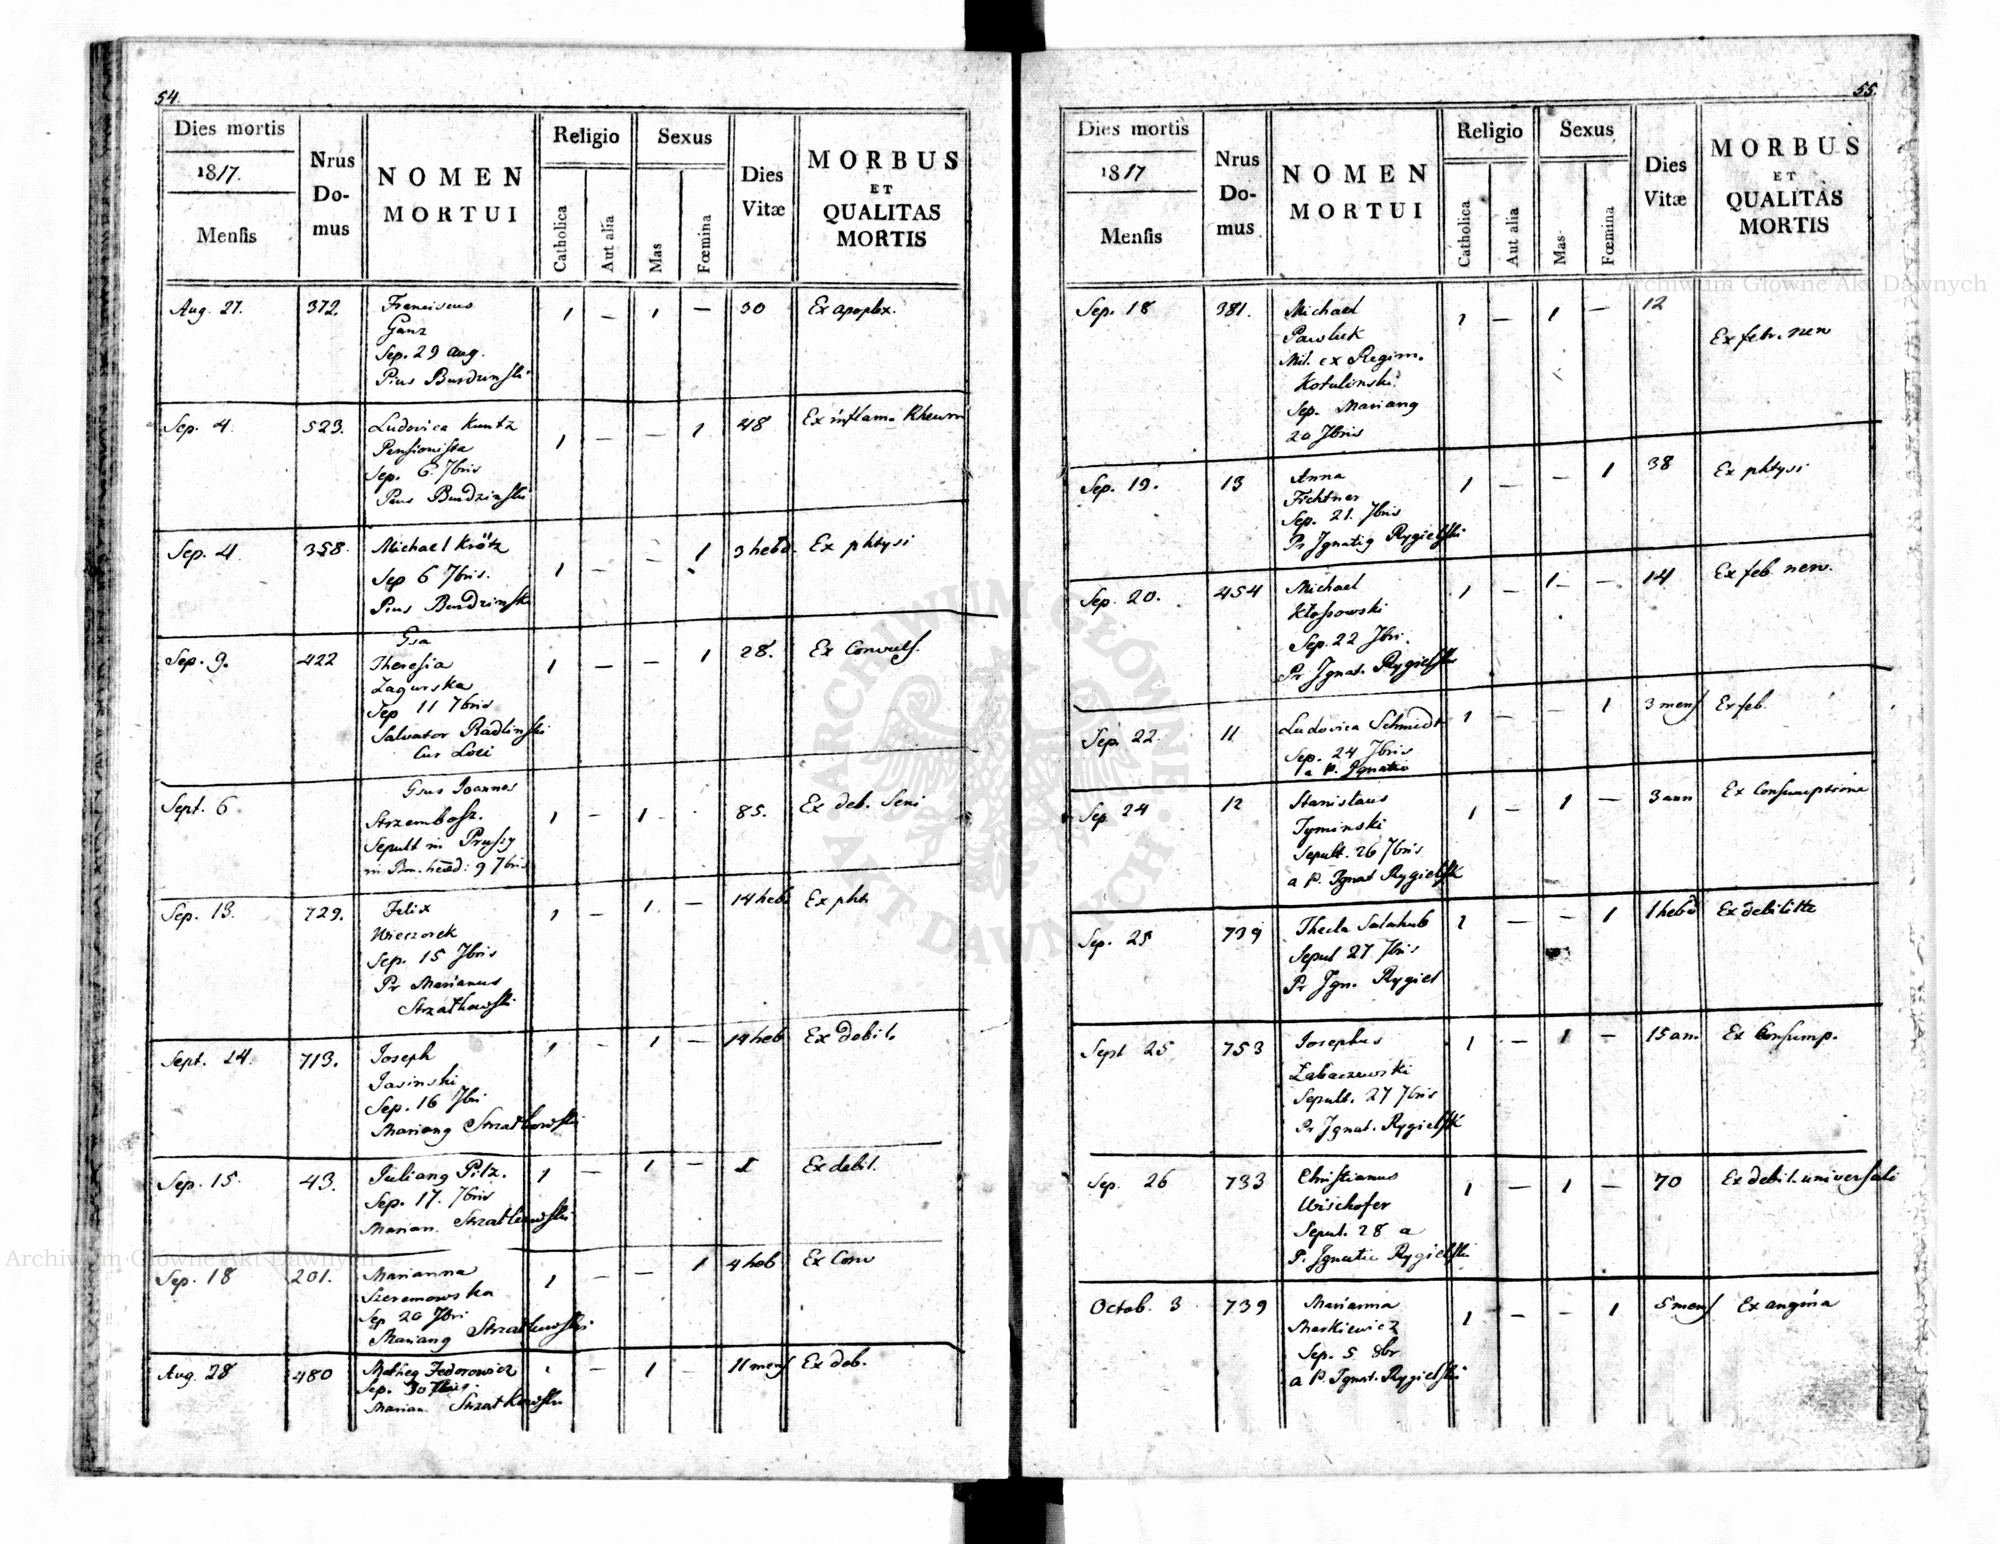 54.
Dies mortis
1817.
Mensis
Nrus
Do-
mus
NOMEN
MORTUI
Religio
Catholica
Aut alia
Sexus
Mas
Fœmina
Dies
Vitæ
MORBUS
ET
QUALITAS
MORTIS
Aug. 27. 372. Franciscus 1 — 1 — 30 Ex apoplex.
Ganz
Sep. 29 Aug.
Pius Burdzinski
Sep. 4. 523. Ludovica Kuntz 1 — — 1 48 Ex inflam. Rheum
Pensionista
Sep. 6. 7bris
Pius Burdzinski
Sep. 4. 358. Michael Krötz 1 — — 1 3 hebd. Ex phtysi
Sep 6 7bris.
Pius Burdzinski
Sep. 9. 422 Gsa 1 — — 1 28. Ex Convuls.
Theresia
Zagurska
Sep 11 7bris
Salvator Radlinski
Cur Loci
Sept. 6 Gsus Joannes 1 — 1 - 85. Ex deb. Seni
Strzembosz.
Sepult in Prussy
in Bon. hered: 9 7bris
Sep. 13. 729. Felix 1 — 1. — 14 heb Ex pht.
Wieczorek
Sep. 15 7bris
Pr Marianus
Strzałkowski
Sept. 14. 713. Joseph 1 — 1 — 14 heb Ex debil.
Jasinski
Sep. 16 7bri
Mariang Strzałkowski
Sep. 15. 43. Juliang Pilz. 1 — 1 — 1 Ex debil.
Sep. 17. 7bris
Marian. Strzałkowski
Sep. 18 201. Marianna 1 — — 1 4 heb Ex Conv
Szeremowska
Sep 20 7bri
Mariang Strzałkowski
Aug. 28 480 Matheg Fedorowicz 1 — 1 — 11 mens Ex deb.
Sep. 30
Marian. Strzałkowski
55.
Dies mortis
1817
Mensis
Nrus
Do-
mus
NOMEN
MORTUI
Religio
Catholica
Aut alia
Sexus
Mas
Fœmina
Dies
Vitæ
MORBUS
ET
QUALITAS
MORTIS
Sep. 18 381. Michael 1 — 1 — 12 Ex febr. nerv
Pawluk
Mil. ex Regim.
Kotulinski
Sep. Mariang
20 7bris
Sep. 19. 13 Anna 1 — — 1 38 Ex phtysi
Fichtner
Sep. 21. 7bris
Pr Ignatig Rygielski
Sep. 20. 454 Michael 1 — 1 — 14 Ex feb nerv.
Kłossowski
Sep. 22 7bri.
Pr Ignat. Rygielski
Sep. 22 11 Ludovica Schmidt 1 — — 1 3 mens Ex feb.
Sep. 24 7bris
a P. Ignatio
Sep 24 12 Stanislaus 1 — 1 — 3 ann Ex Consumptione
Tyminski
Sepult. 26 7bris
a P. Ignat Rygielsk
Sep. 25 739 Thecla Salahub 1 — — 1 1 hebd Ex debilitte
Sepul 27 7bris
Pr Ign. Rygiel
Sept 25 753 Josephus 1 — 1 — 15 an Ex Consump.
Labaczewski
Sepult. 27 7bris
Pr Ignat. Rygielsk
Sep. 26 733 Christianus 1 — 1 — 70 Ex debil. universali
Wischofer
Sepul. 28 a
P. Ignatio Rygielski
Octob. 3 739 Marianna 1 — — 1 5 mens Ex angina
Markiewicz
Sep. 5 8br
a P. Ignat. Rygielski
Archiwum Główne Akt Dawnych
Archiwum Główne Akt Dawnych
ARCHIWUM GŁÓWNE
AKT DAWNYCH